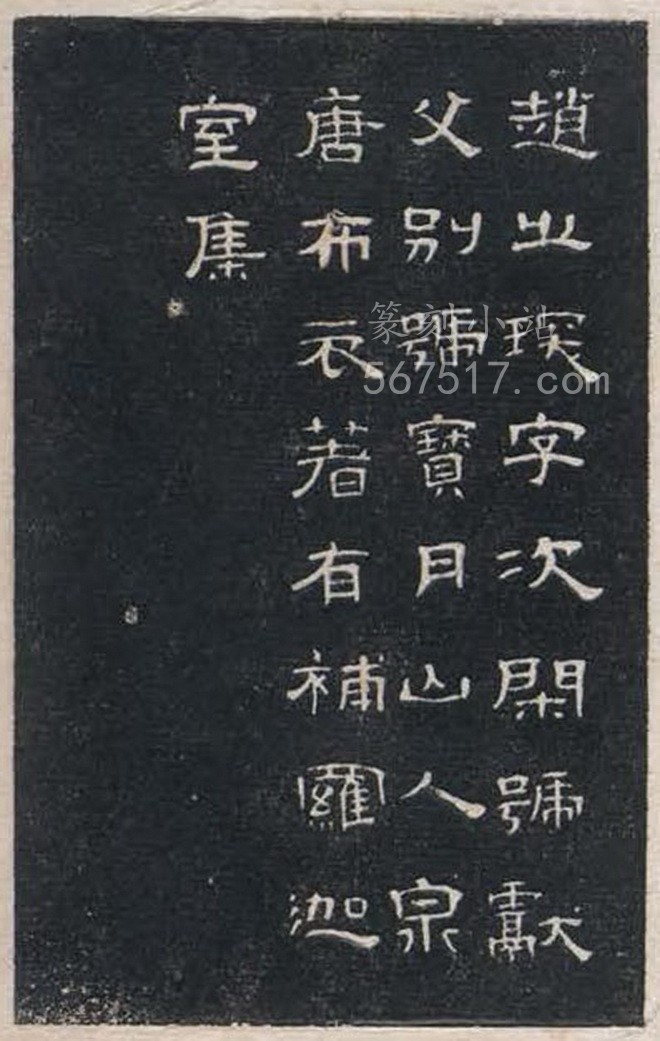 趙之琛字次閑號獻
父別號寶月山人泉
唐布衣著有補羅迦
室集
篆刻小站
567517.com